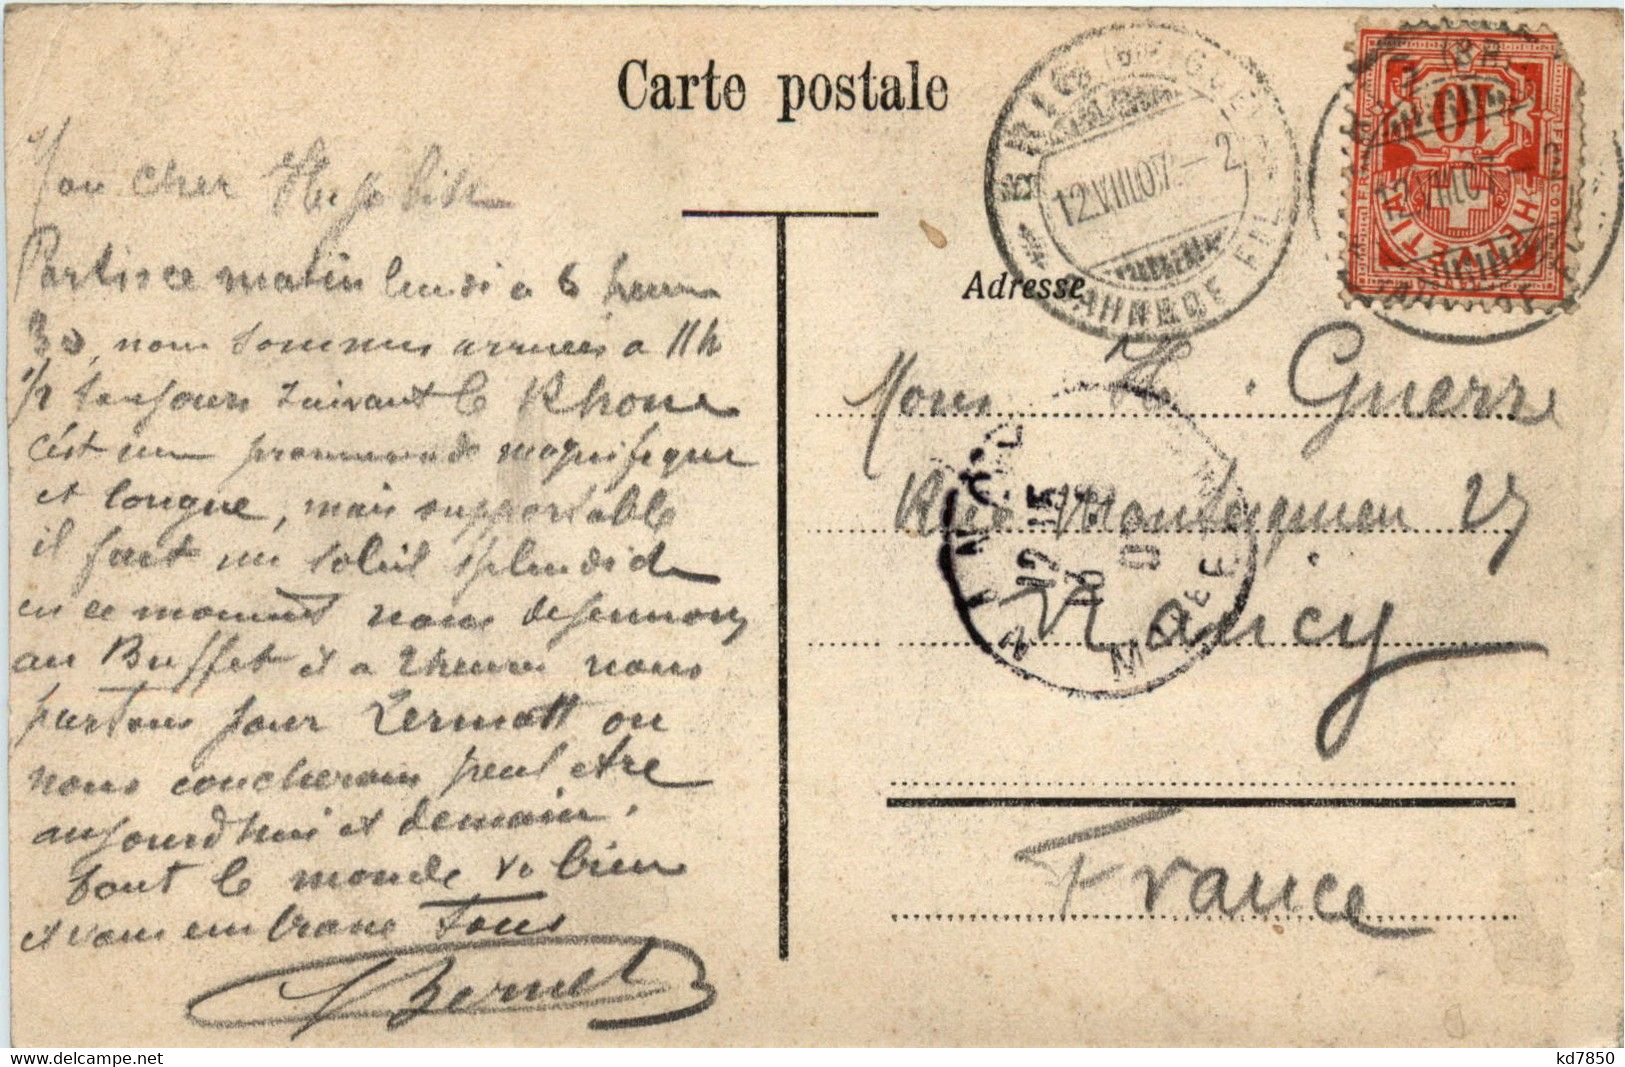 Carte postale
Mon cher Hippolite
Partis ce matin lundi a 6 heures
30, nous sommes arrivés a 11h
1/2 toujours suivant le Rhone
c'est une promenade magnifique
et longue, mais supportable
il fait un soleil splendide
en ce moment nous dejeunons
au Buffet et a 2 heures nous
partons pour Zermatt ou
nous coucherons peut etre
aujourdhui et demain.
tout le monde va bien
et vous embrasse Tous
Bernet
BRIG (BRIGUE)
12.VIII.07.–2
BAHNHOF FIL.
10
HELVETIA
FRANCO
12.VIII.07
Adresse
Mons H. Guerre
Rue Montesquieu 27
Nancy
France
NANCY
MEURTHE
www.delcampe.net
kd7850